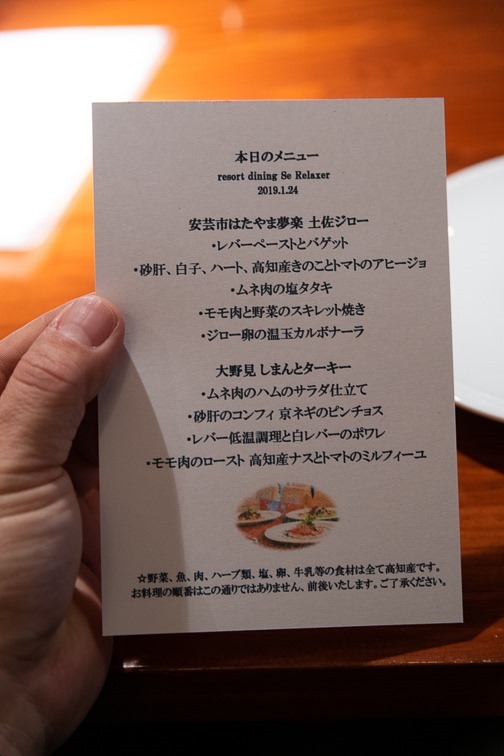 本日のメニュー
resort dining Se Relaxer
2019.1.24
安芸市はたやま夢楽 土佐ジロー
・レバーペーストとバゲット
・砂肝、白子、ハート、高知産きのことトマトのアヒージョ
・ムネ肉の塩タタキ
・モモ肉と野菜のスキレット焼き
・ジロー卵の温玉カルボナーラ
大野見 しまんとターキー
・ムネ肉のハムのサラダ仕立て
・砂肝のコンフィ 京ネギのピンチョス
・レバー低温調理と白レバーのポワレ
・モモ肉のロースト 高知産ナスとトマトのミルフィーユ
☆野菜、魚、肉、ハーブ類、塩、卵、牛乳等の食材は全て高知産です。
お料理の順番はこの通りではありません、前後いたします。ご了承ください。